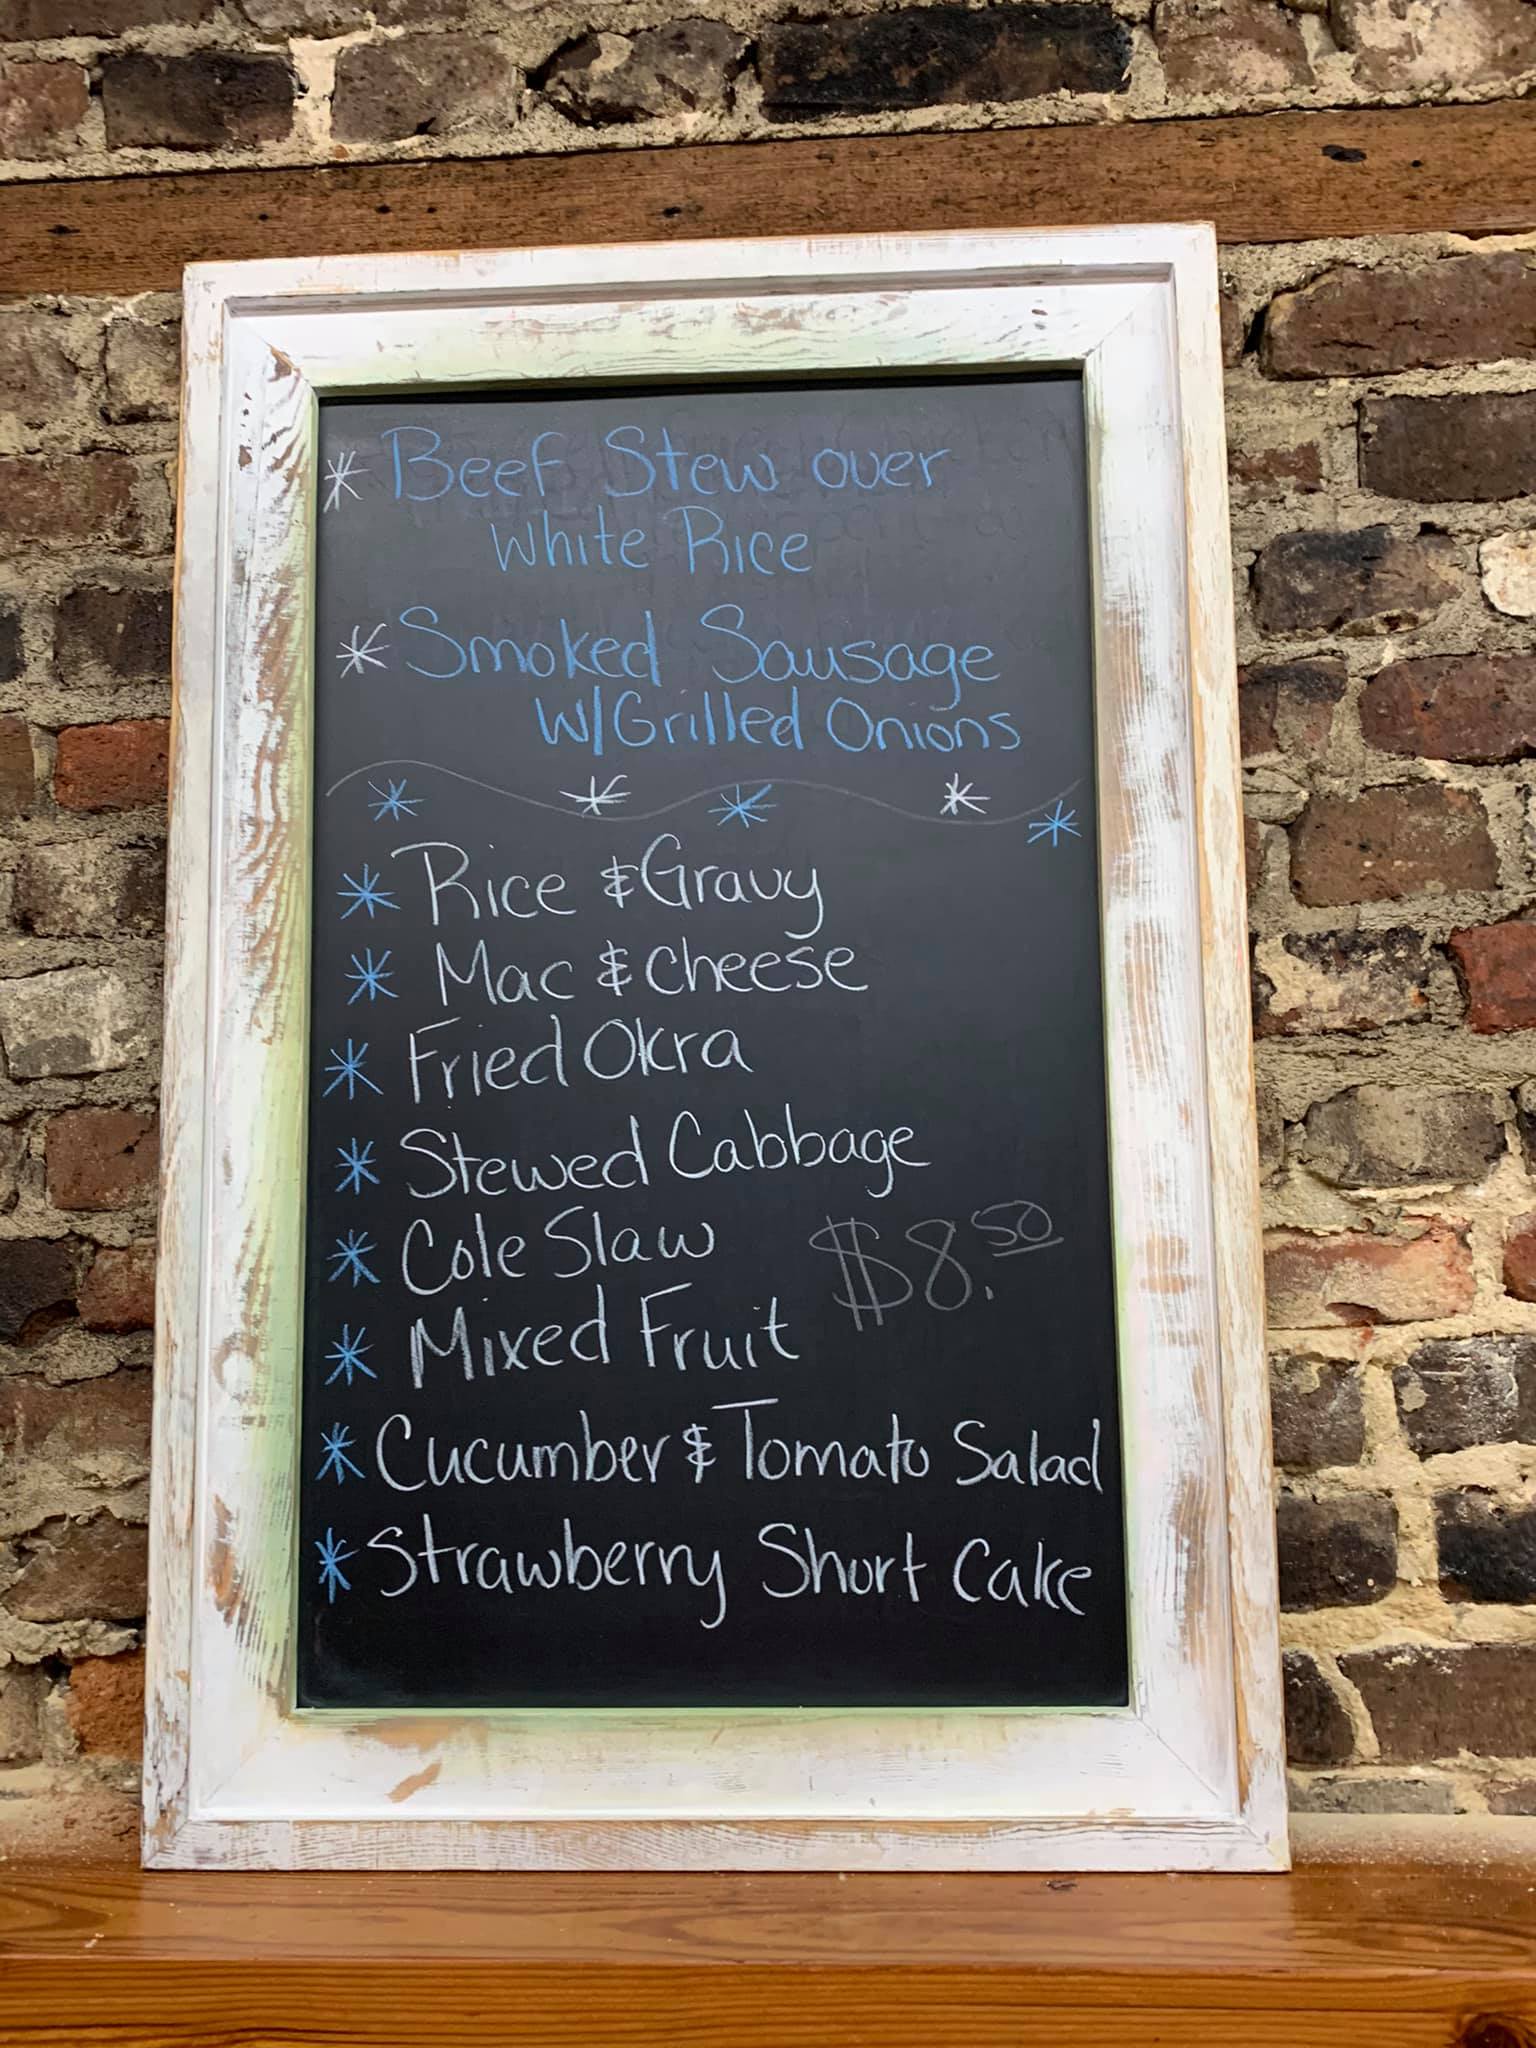 * Beef Stew over
White Rice
* Smoked Sausage
W/Grilled Onions
* Rice & Gravy
* Mac & Cheese
* Fried Okra
* Stewed Cabbage
* Cole Slaw
$8.50
* Mixed Fruit
* Cucumber & Tomato Salad
* Strawberry Short Cake